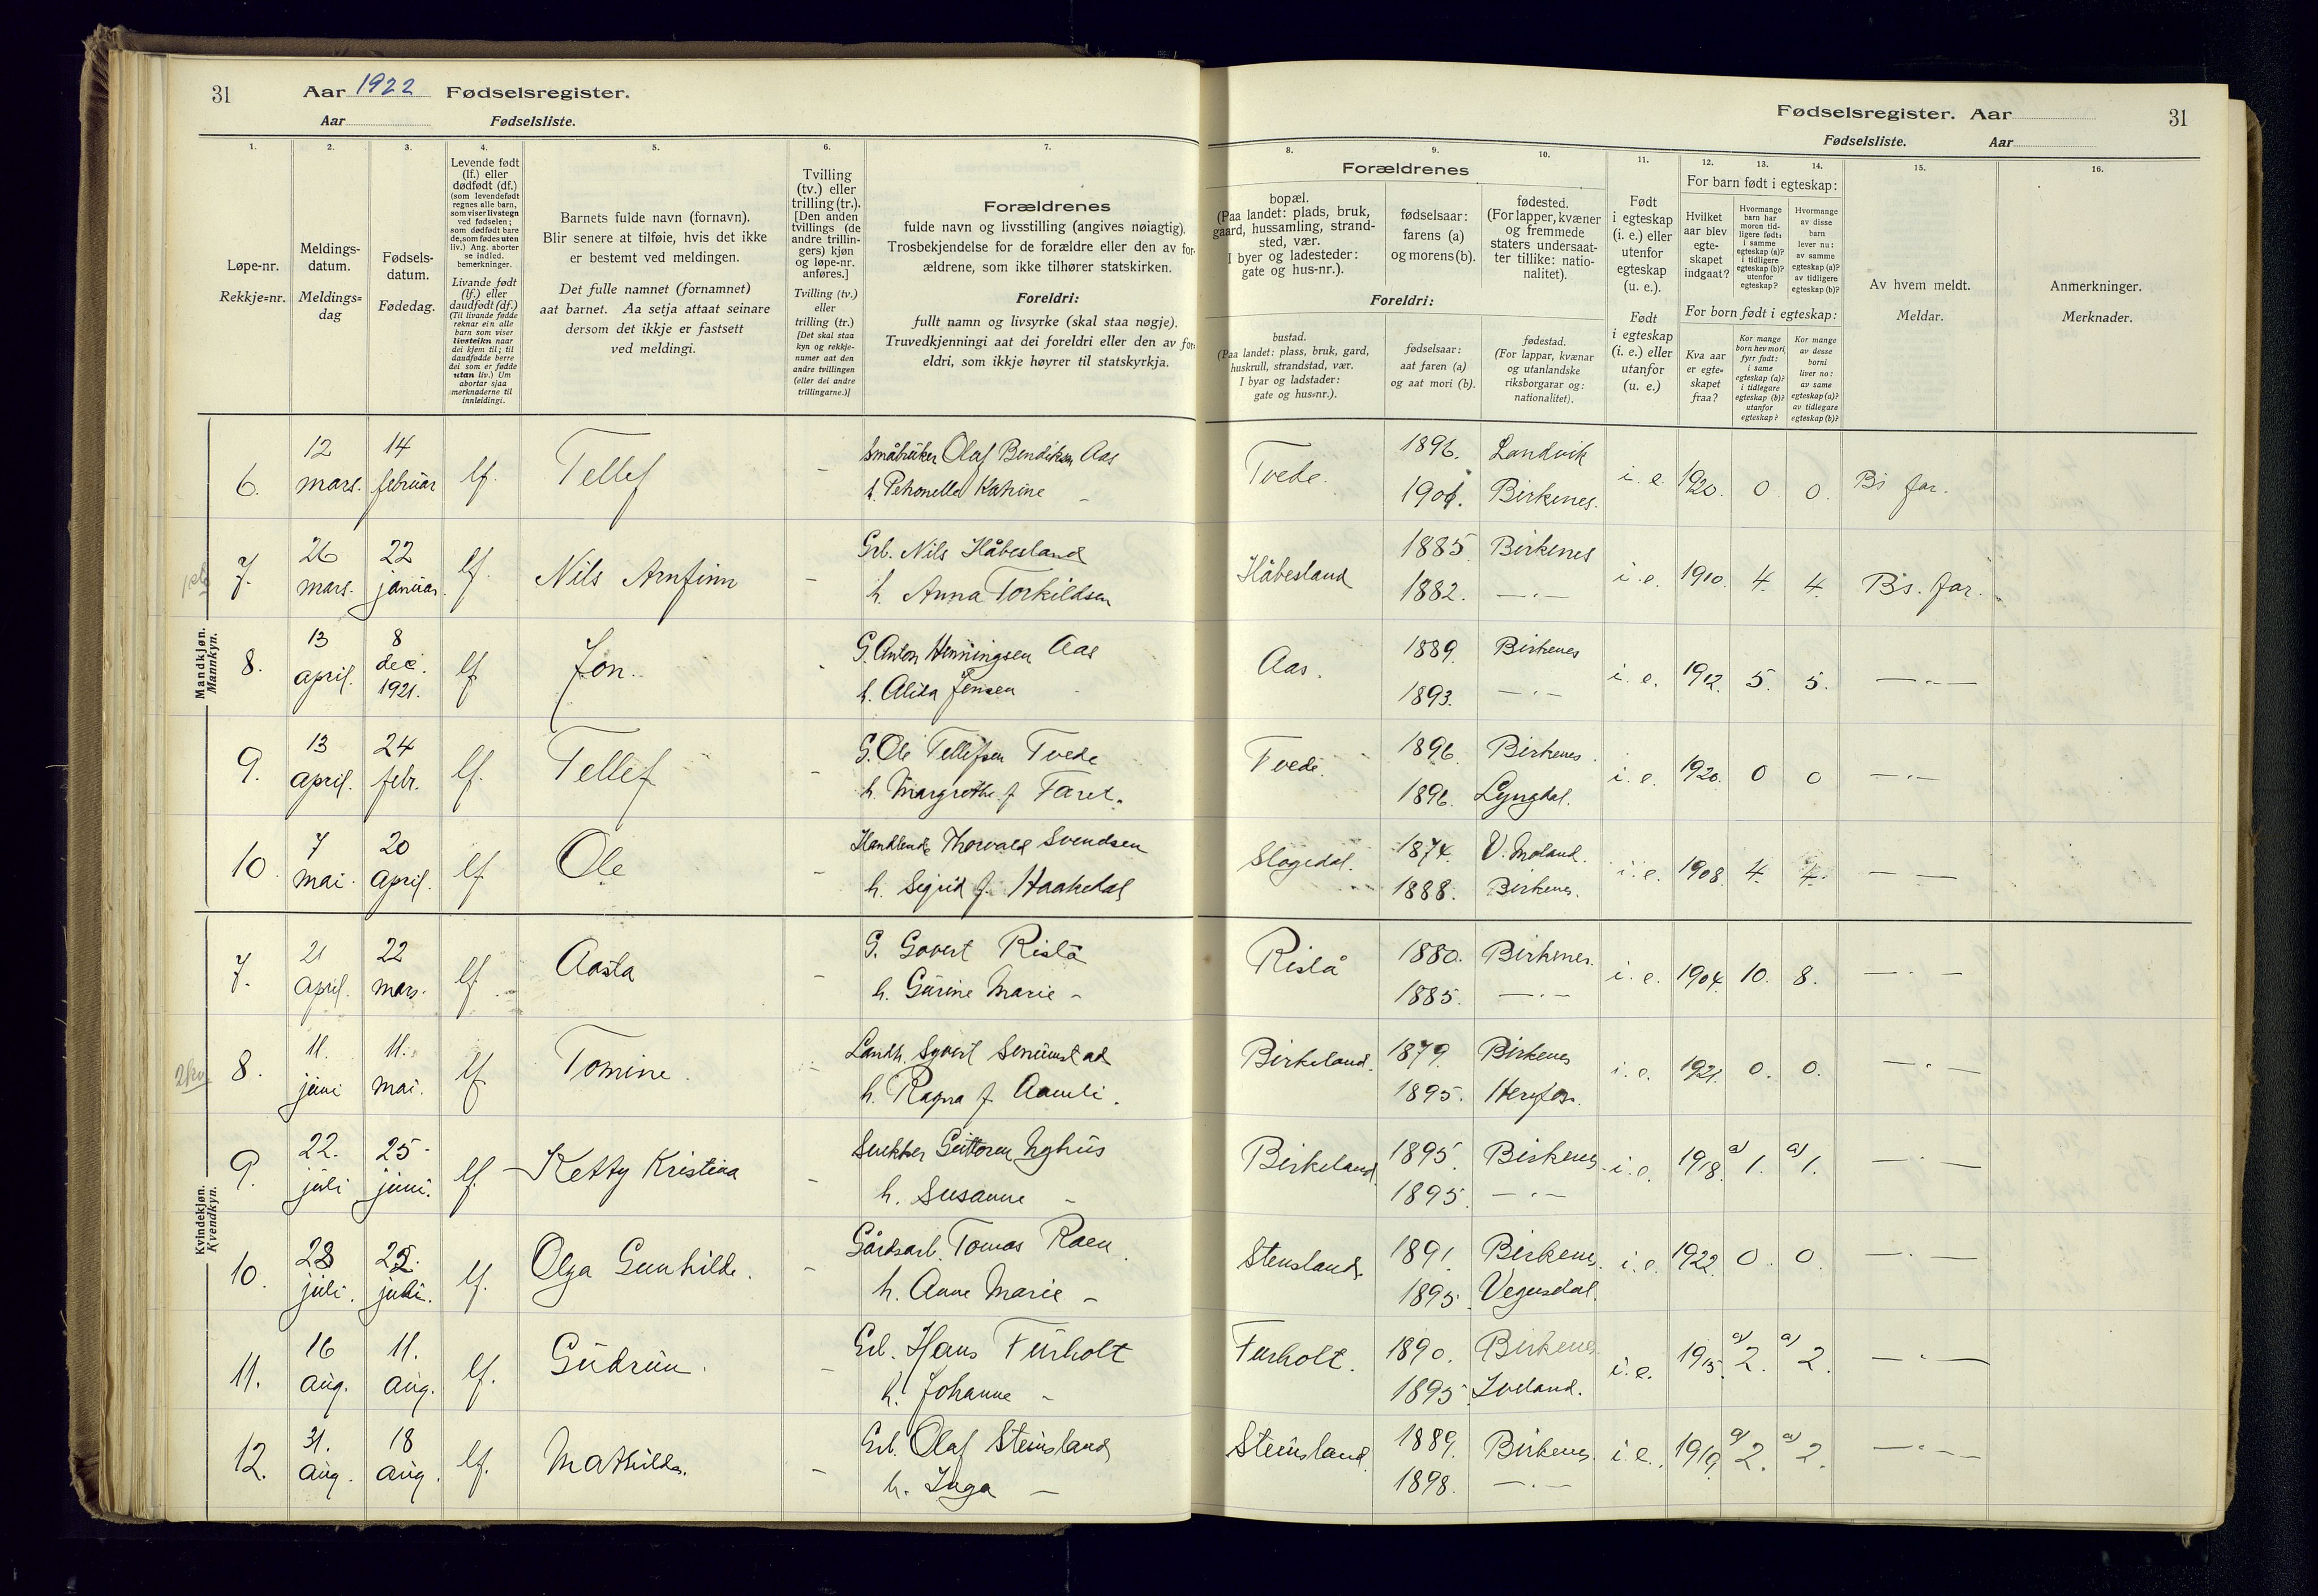 31 Aar 1922 Fødselsregister.
Aar Fødselsliste.
Fødselsregister. Aar 31
Fødselsliste. Aar
1. 2. 3. 4. 5. 6. 7. 8. 9. 10. 11. 12. 13. 14. 15. 16.
Løpe-nr.
Rekkje=nr.
Meldings-
datum.
Meldings=
dag
Fødsels-
datum.
Fødedag.
Levende født
(lf.) eller
dødfødt (df.)
(som levendefødt
regnes alle barn,
som viser livstegn
ved fødselen;
som dødfødt bare
de, som fødes uten
liv.) Ang. aborter
se indled.
bemerkninger.
Livande født
(lf.) eller
daudfødt (df.)
(Til livande fødde
reknar ein alle
barn som viser
livsteikn naar
dei kjem til; til
daudfødde berre
dei som er fødde
utan liv.) Um
abortar sjaa
merknaderne til
innleidingi.
Barnets fulde navn (fornavn).
Blir senere at tilføie, hvis det ikke
er bestemt ved meldingen.
Det fulle namnet (fornamnet)
aat barnet. Aa setja attaat seinare
dersom det ikkje er fastsett
ved meldingi.
Tvilling
(tv.) eller
trilling (tr.).
[Den anden
tvillings (de
andre trillin-
gers) kjøn
og løpe-nr.
anføres.]
Tvilling (tv.)
eller
trilling (tr.)
[Det skal staa
kyn og rekkje-
numer aat den
andre tvillingen
(eller dei andre
trillingarne.)]
Forældrenes
fulde navn og livsstilling (angives nøiagtig).
Trosbekjendelse for de forældre eller den av for-
ældrene, som ikke tilhører statskirken.
Foreldri:
fullt namn og livsyrke (skal staa nøgje).
Truvedkjenningi aat dei foreldri eller den av for-
eldri, som ikkje høyrer til statskyrkja.
Forældrenes
bopæl.
(Paa landet: plads, bruk,
gaard, hussamling, strand-
sted, vær.
I byer og ladesteder:
gate og hus-nr.).
fødselsaar:
farens (a)
og morens (b).
fødested.
(For lapper, kvæner
og fremmede
staters undersaat-
ter tillike: natio-
nalitet).
Foreldri:
bustad.
(Paa landet: plass, bruk, gard,
huskrull, strandstad, vær.
I byar og ladstader:
gate og hus=nr.).
fødselsaar:
aat faren (a)
og aat mori (b).
fødestad.
(For lappar, kvænar
og utanlandske
riksborgarar og:
nationalitet).
Født
i egteskap
(i. e.) eller
utenfor
egteskap
(u. e.).
Født
i egteskap
(i. e.) eller
utanfor
(u. e.)
For barn født i egteskap:
Hvilket
aar blev
egte-
skapet
indgaat?
Hvormange
barn har
moren tid-
ligere født:
i samme
egteskap (a)?
i tidligere
egteskap (b)?
utenfor
egteskap?
Hvormange
av disse
barn
lever nu:
av samme
egteskap (a)?
av tidligere
egteskap (b)?
For born født i egteskap:
Kva aar
er egte=
skapet
fraa?
Kor mange
born hev mori
fyrr født:
i same
egteskap (a)?
i tidlegare
egteskap (b)?
utanfor
egteskap?
Kor mange
av desse
borni
liver no:
av same
egteskap (a)?
av tidlegare
egteskap (b)?
Av hvem meldt.
Meldar.
Anmerkninger.
Merknader.
Mandkjøn.
Mannkyn.
6. 12 mars. 14 februar lf. Tellef – Småbruker Olaf Bendiksen Aas Tvede. 1896. Landvik i. e. 1920. 0 0. Bs far.
h. Petronelle Katrine – 1901. Birkenes.
7. 26 mars. 22 januar. lf. Nils Arnfinn – Grb. Nils Håbesland Håbesland 1885 Birkenes i. e. 1910. 4. 4. Bs. far.
h. Anna Torkildsen 1882. —·—
8. 13 april. 8 dec. 1921. lf Jon. G. Anton Henningsen Aas Aas. 1889. Birkenes i. e. 1912. 5. 5. —·—
h. Alida Jensen 1893. —·—
9. 13 april. 24 febr. lf. Tellef – G. Ole Tellefsen Tvede Tvede. 1896. Birkenes. i. e. 1920. 0 0 —·—
h. Margrethe f Faret. 1896. Lyngdal.
10. 7 mai. 20 april. lf Ole – Handlende Thorvald Svendsen Slogedal. 1874. V. Moland. i. e. 1908. 4. 4. — —
h. Sigrid f. Haakedal 1888. Birkenes.
Kvindekjøn.
Kvendkyn.
7. 21 april. 22 mars. lf. Aasta – G. Govert Rislå Rislå 1880. Birkenes. i. e. 1904. 10. 8. —·—
h. Gurine Marie – 1885. —·—
8. 11. juni 11. mai. lf Tomine. Landh. Syvert Senumstad Birkeland. 1879. Birkenes i. e. 1921. 0. 0. —·—
h. Ragna f. Aamli. 1895. Herefoss.
9. 22. juli 25 juni. lf. Ketty Kristina – Guttorm Nyhus Birkeland. 1895. Birkenes. i. e. 1918. a) 1. a) 1. —·—
h. Susanne – 1895. —·—
10. 28 juli. 22. juli. lf. Olga Gunhilde. – Gårdsarb. Tomas Raen Stensland. 1891. Birkenes. i. e. 1922. 0. 0. —·—
h. Anne Marie – 1895. Vegusdal.
11. 16 aug. 11. aug. lf. Gudrun. – Grb. Hans Furholt Furholt. 1890. Birkenes i. e. 1915. a) 2. a) 2. —·—
h. Johanne – 1895 Iveland.
12. 31. aug. 18 aug. lf. Mathilde. – Grb. Olaf Steinsland Steinsland. 1889. Birkenes. i. e. 1919. a) 2. a) 2. —·—
h. Inga – 1898. —·—